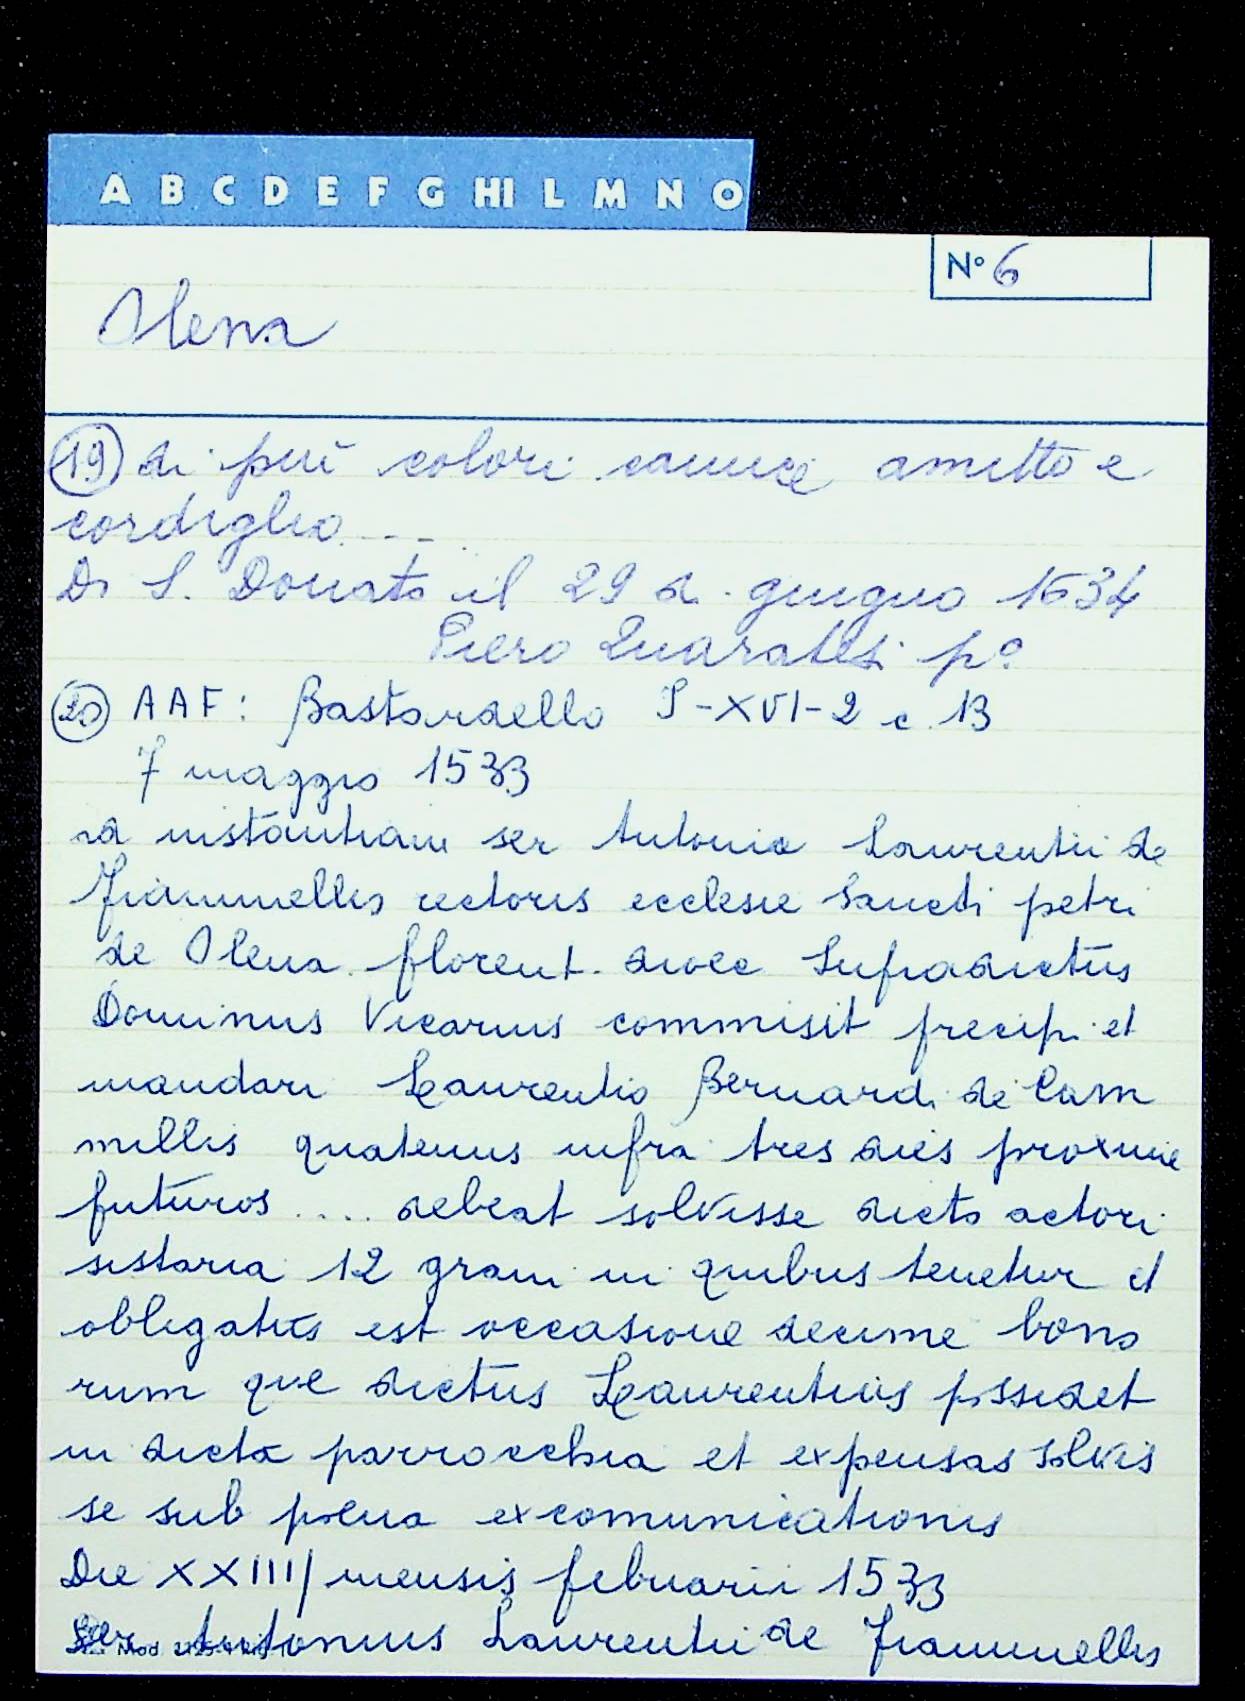 A B C D E F G HI L M N O
N° 6
Olena
19 di più colori camice amitto e
cordiglio...
Di S. Donato il 29 di giugno 1634
Piero Quaratesi p°
20 AAF: Bastardello S-XVI-2 c. 13
7 maggio 1533
ad instantiam ser Antonio Laurentii de
Fiammellis rectoris ecclesie Sancti petri
de Olena florent. dioec supradictus
Dominus Vicarius commisit precipi et
mandari Laurentio Bernardi de Cam
millis quatenus infra tres dies proxime
futuros .... debeat solvisse dicto actori
sistaria 12 grani in quibus tenetur et
obligatus est occasione decime bono
rum que dictus Laurentius possidet
in dicta parrocchia et expensas solvis
se sub poena excomunicationis
Die XXIII mensis februarii 1533
Ser Antonius Laurentii de Fiammellis
Mod